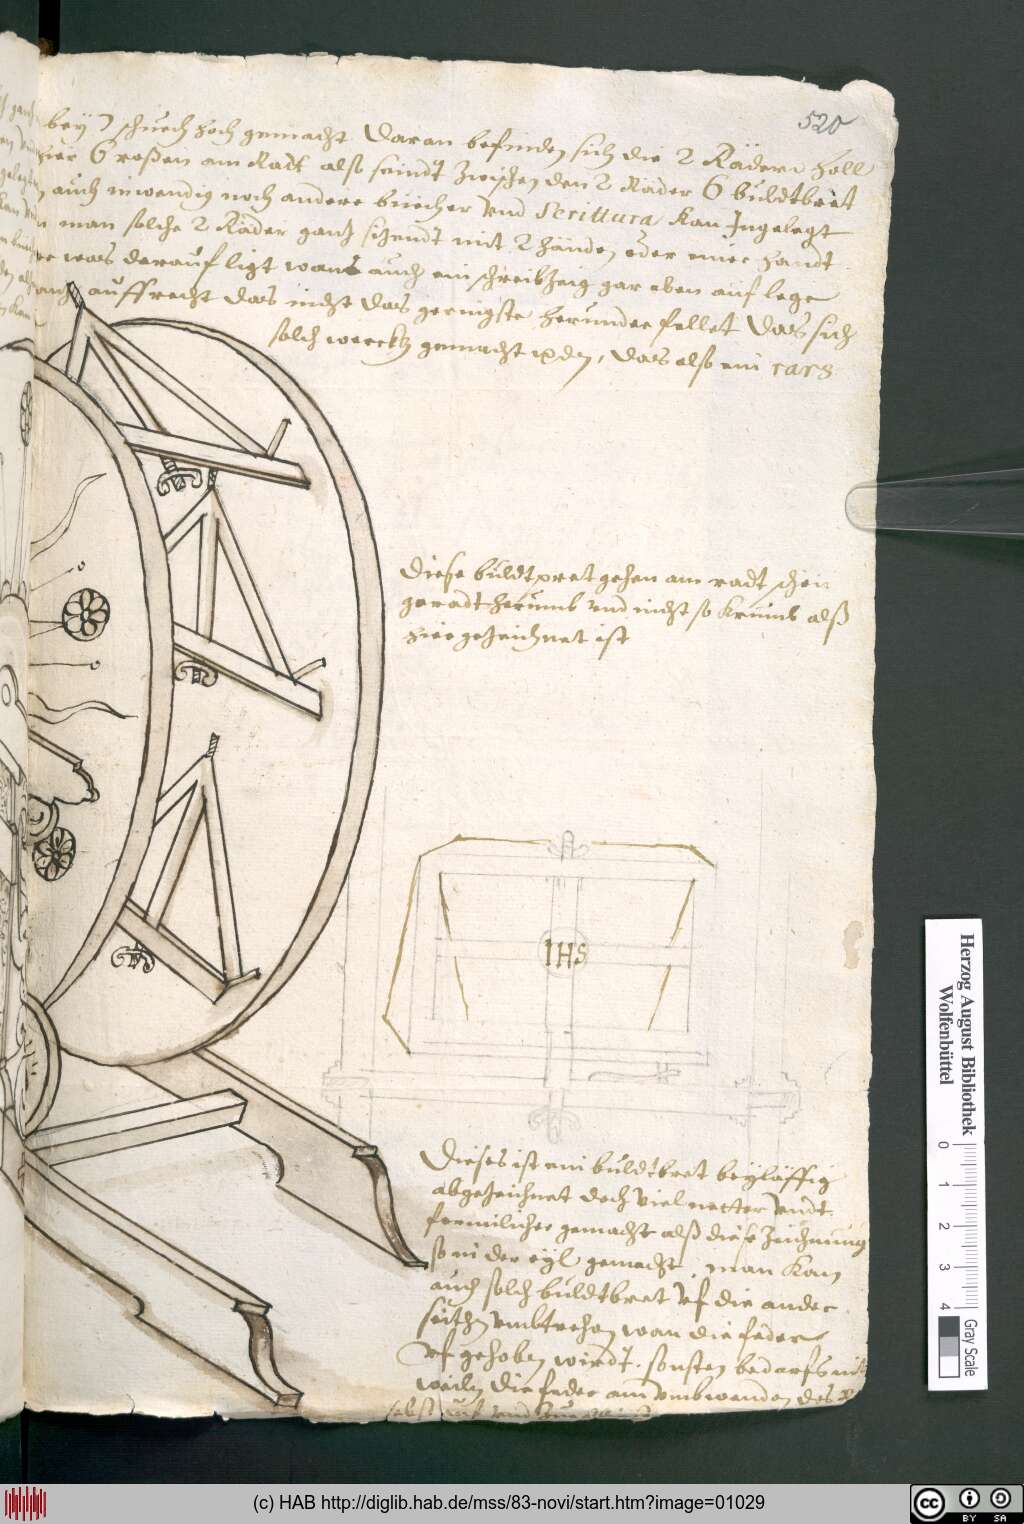 520
bey 7 schuech hoch gemacht daran befinden sich die 2 Rädern holl
hier 6 roßein am Radt alß seindt zwischen den 2 Räder 6 buldtbret
auch inwendig noch andere buecher vnd Scrittura kan Ingelegt
man solche 2 Räder gantz sitzendt mit 2 händen oder einer handt
was darauf ligt wans auch ein schreibzeig gar oben auf lege
auffrecht das nicht das geringste herunder fellet das sich
solch werckh gemacht das also ein rars
diese buldt pret gehen am radt schön
geradt herumb vnd nicht so krumb alß
hie gezeichnet ist
IHS
Dieses ist ein buldtbret beyläffig
abgezeichnet doch viel netter vndt
formlicher gemacht alß diese Zeichnung
so in der eyl gemacht, man kan
auch solch buldtbret vf die ander
seithen vmbtrehen wan die feder
vfgehoben wirdt. sonsten bedarfs nit
weiln die feder am vmbwenden des
selbst auf vnd
Herzog August Bibliothek
Wolfenbüttel
0 1 2 3 4
Gray Scale
(c) HAB http://diglib.hab.de/mss/83-novi/start.htm?image=01029
cc BY SA